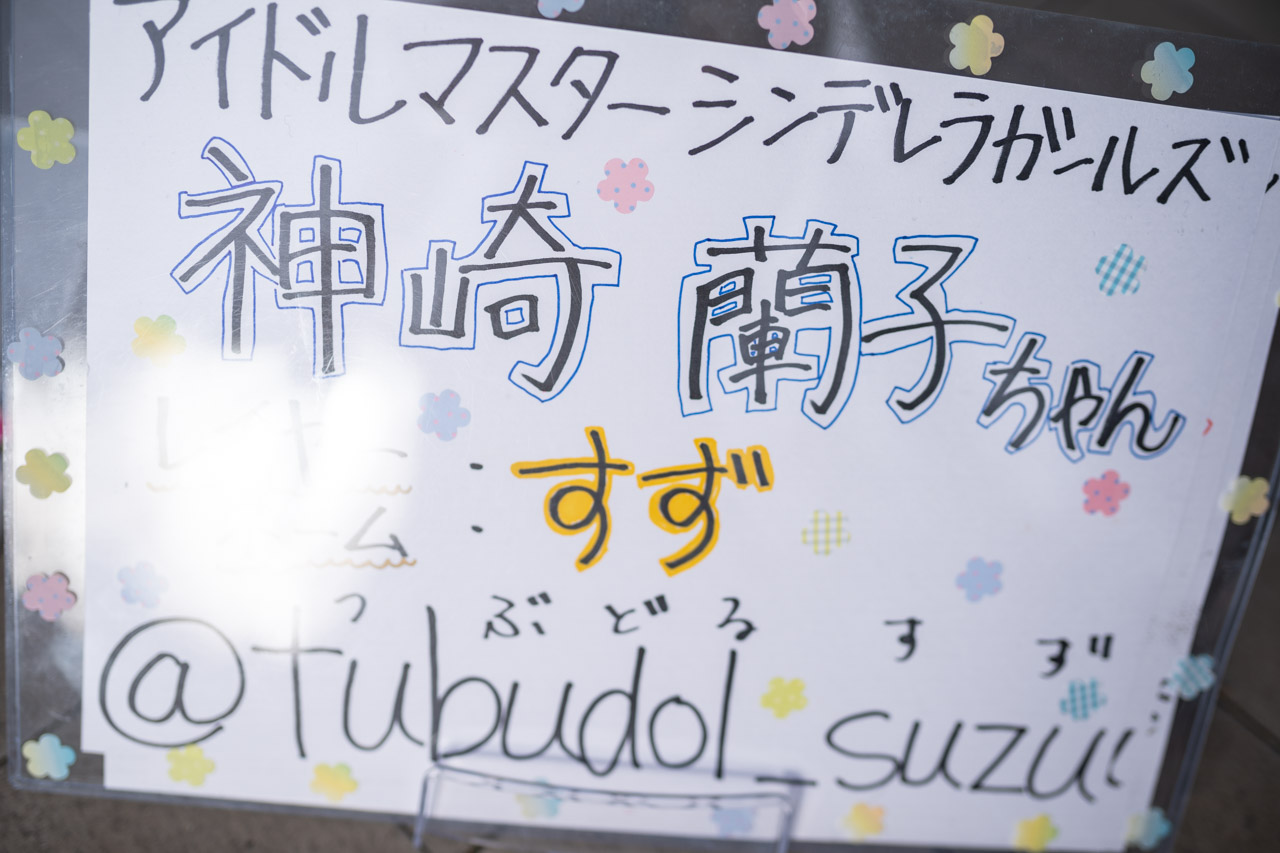 アイドルマスター シンデレラガールズ
神崎 蘭子ちゃん
レイヤー
ーム : すず
つぶどる すず
@tubudol_suzu